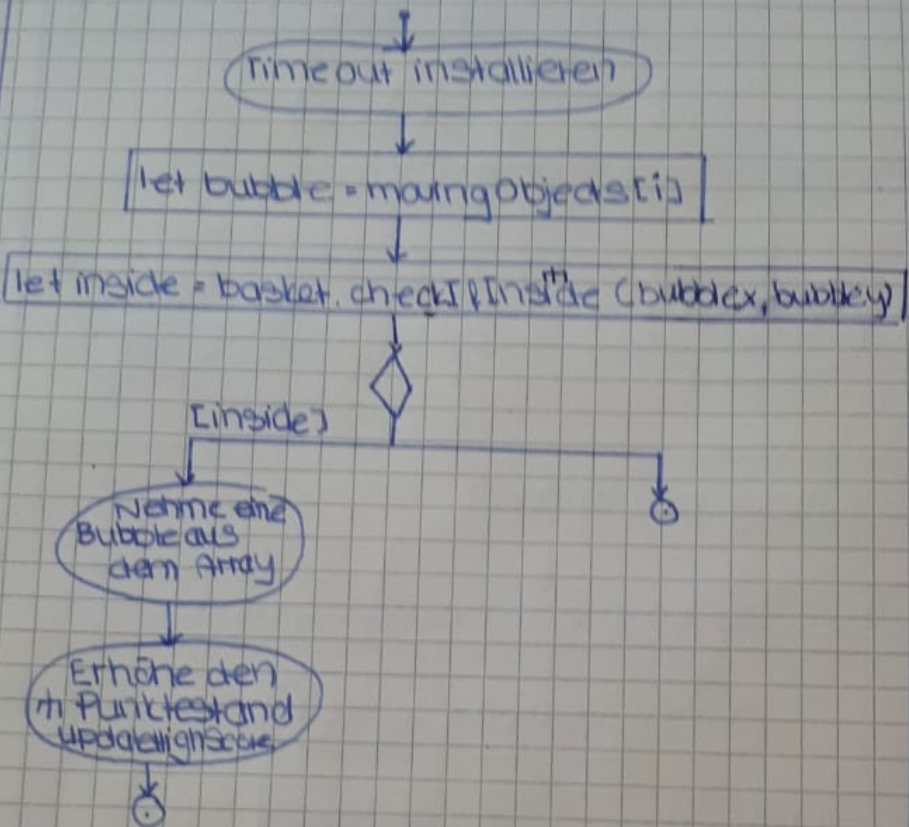 Timeout installieren
let bubble = movingObjects[i]
let inside = basket.checkIfInside (bubblex, bubbley)
[inside]
Nehme eine
Bubble aus
dem Array
Erhöhe den
Punktestand
updateHighScore